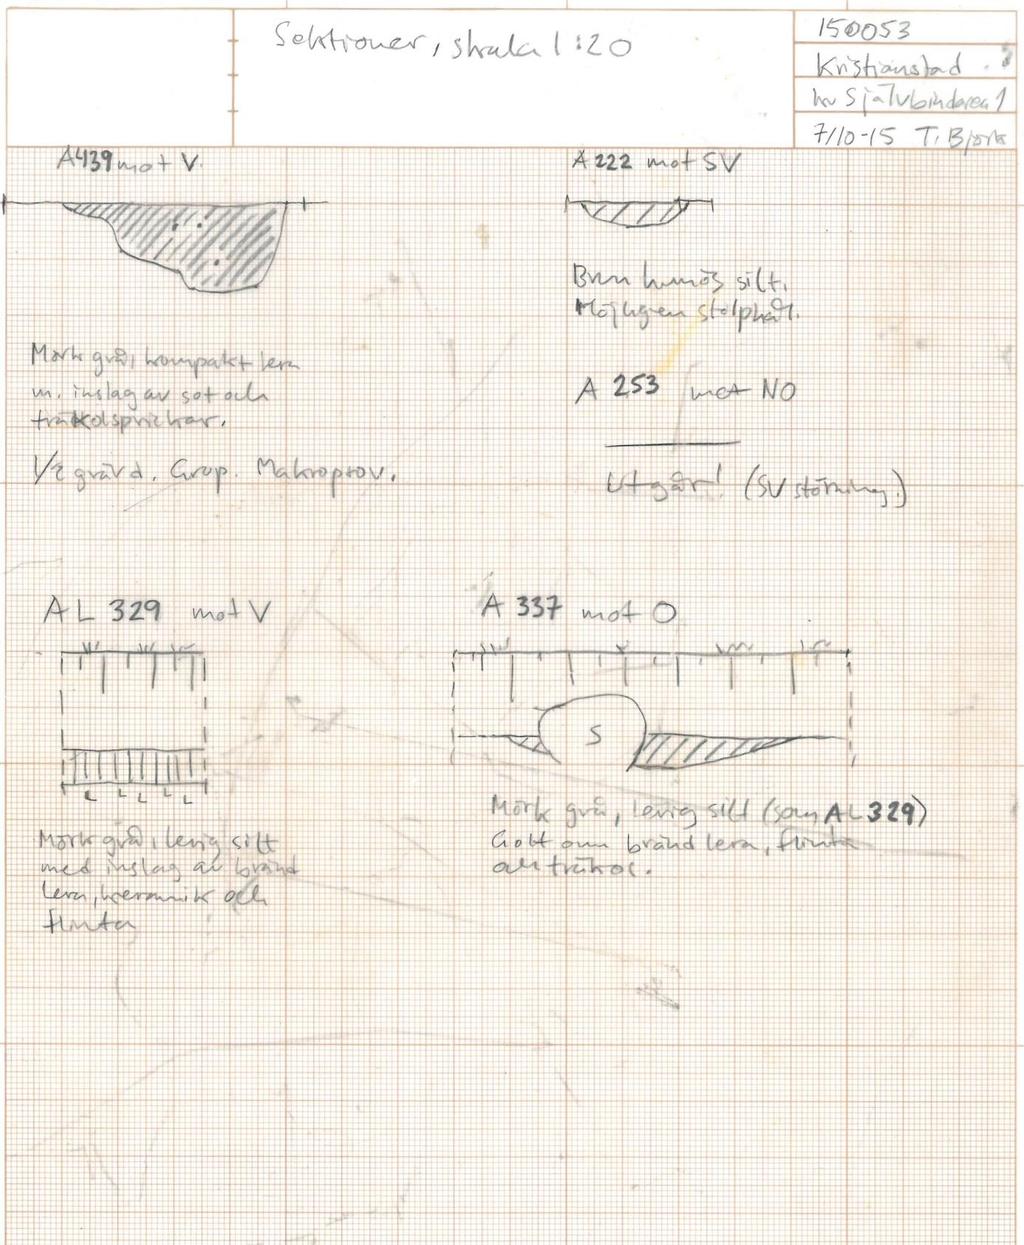 Sektioner, skala 1:20
150053
Kristianstad
kv Självbindaren 1
7/10-15 T. Björk
A439 mot V.
A 222 mot SV
Brun humös silt.
Möjligen stolphål.
Mörk grå, kompakt lera
m. inslag av sot och
träkolsprickar.
1/2 grävd. Grop. Makroprov.
A 253 mot NO
Utgår! (SV störning.)
AL 329 mot V
L L L L L
Mörk grå, lerig silt
med inslag av bränd
lera, keramik och
flinta
A 337 mot O
S
Mörk grå, lerig silt (som AL 329)
Gott om bränd lera, flinta
och träkol.